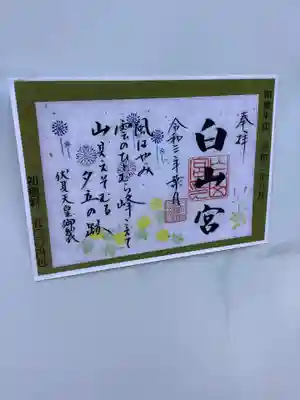 奉拝
白山宮
令和三年葉月
風はやみ
雲のひとむら峰こえて
山見えそむる
夕立の跡
伏見天皇御製